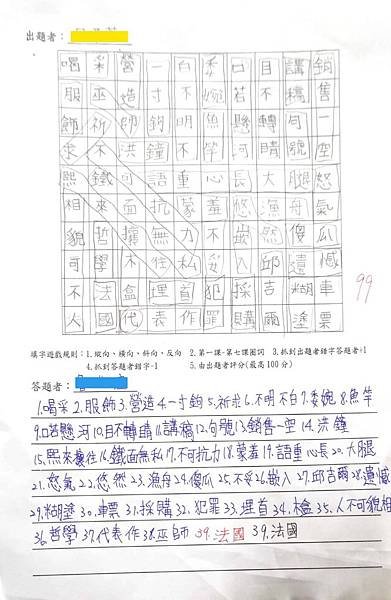 出題者：
喝采營一白委口目講銷
服巫造寸不婉若不稿售
飾祈師鉤明魚懸轉句一
求不洪鐘不竿河睛號空
熙鐵可語重心長大腿怒
相來面抗蒙羞悠漁舟氣
貌哲攘無力不嵌然傻瓜
可學木往私妥入邱遺憾
不法盒埋首犯採吉糊車
人國代表作罪購爾塗票
99
填字遊戲規則：1.縱向、橫向、斜向、反向 2.第一課-第七課圈詞 3.抓到出題者錯字答題者+1
4.抓到答題者錯字-1 5.由出題者評分(最高100分)
答題者：
1.喝采 2.服飾 3.營造 4.一寸鉤 5.祈求 6.不明不白 7.委婉 8.魚竿
9.口若懸河 10.目不轉睛 11.講稿 12.句號 13.銷售一空 14.洪鐘
15.熙來攘往 16.鐵面無私 17.不可抗力 18.蒙羞 19.語重心長 20.大腿
21.怒氣 22.悠然 23.漁舟 24.傻瓜 25.不妥 26.嵌入 27.邱吉爾 28.遺憾
29.糊塗 30.車票 31.採購 32.犯罪 33.埋首 34.木盒 35.人不可貌相
36.哲學 37.代表作 38.巫師 39.法國 39.法國